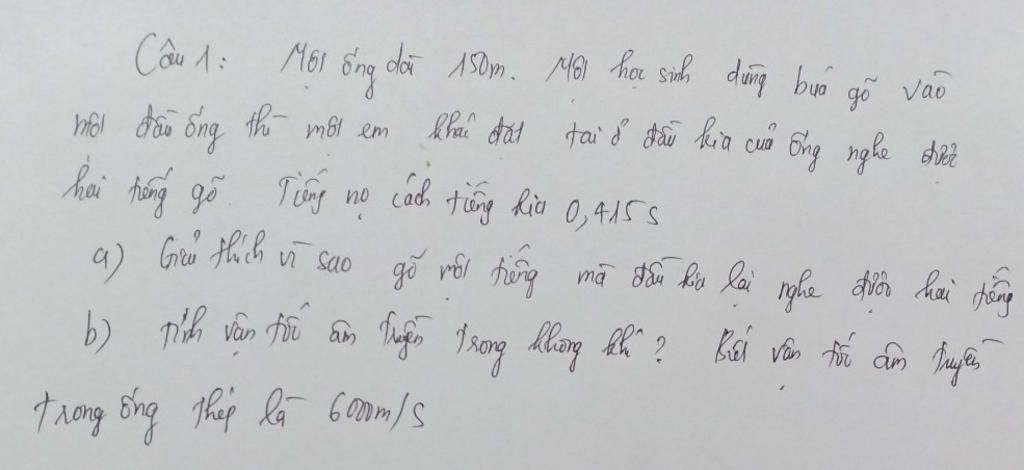 Câu 1: Một ống dài 150m. Một học sinh dùng búa gõ vào
một đầu ống thì một em khác đặt tai ở đầu kia của ống nghe được
hai tiếng gõ. Tiếng nọ cách tiếng kia 0,415s
a) Giải thích vì sao gõ một tiếng mà đầu kia lại nghe được hai tiếng
b) Tính vận tốc âm truyền trong không khí? Biết vận tốc âm truyền
trong ống thép là 6000m/s